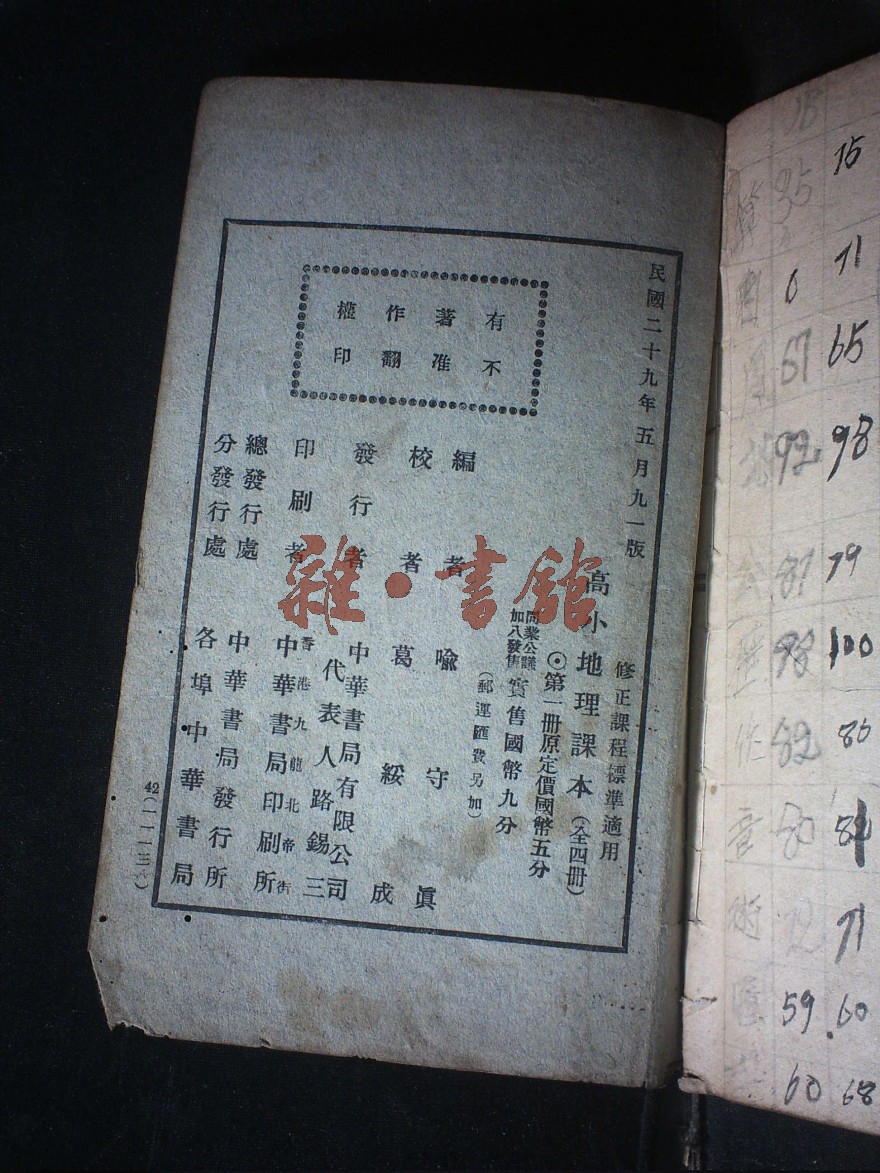 民國二十九年五月九一版
修正課程標準適用
高小地理課本(全四冊)
⊙第一冊原定價國幣五分
同業公議
加八發售
實售國幣九分
(郵運匯費另加)
有著作權
不准翻印
編者 喩守眞
校者 葛綏成
發行者 中華書局有限公司
代表人路錫三
印刷者 香港九龍北帝街
中華書局印刷所
總發行處 中華書局發行所
分發行處 各埠中華書局
雜·書舘
15
71
65
98
79
100
86
71
60
68
35
0
67
92
87
98
82
80
72
59
60
算
作
音
術